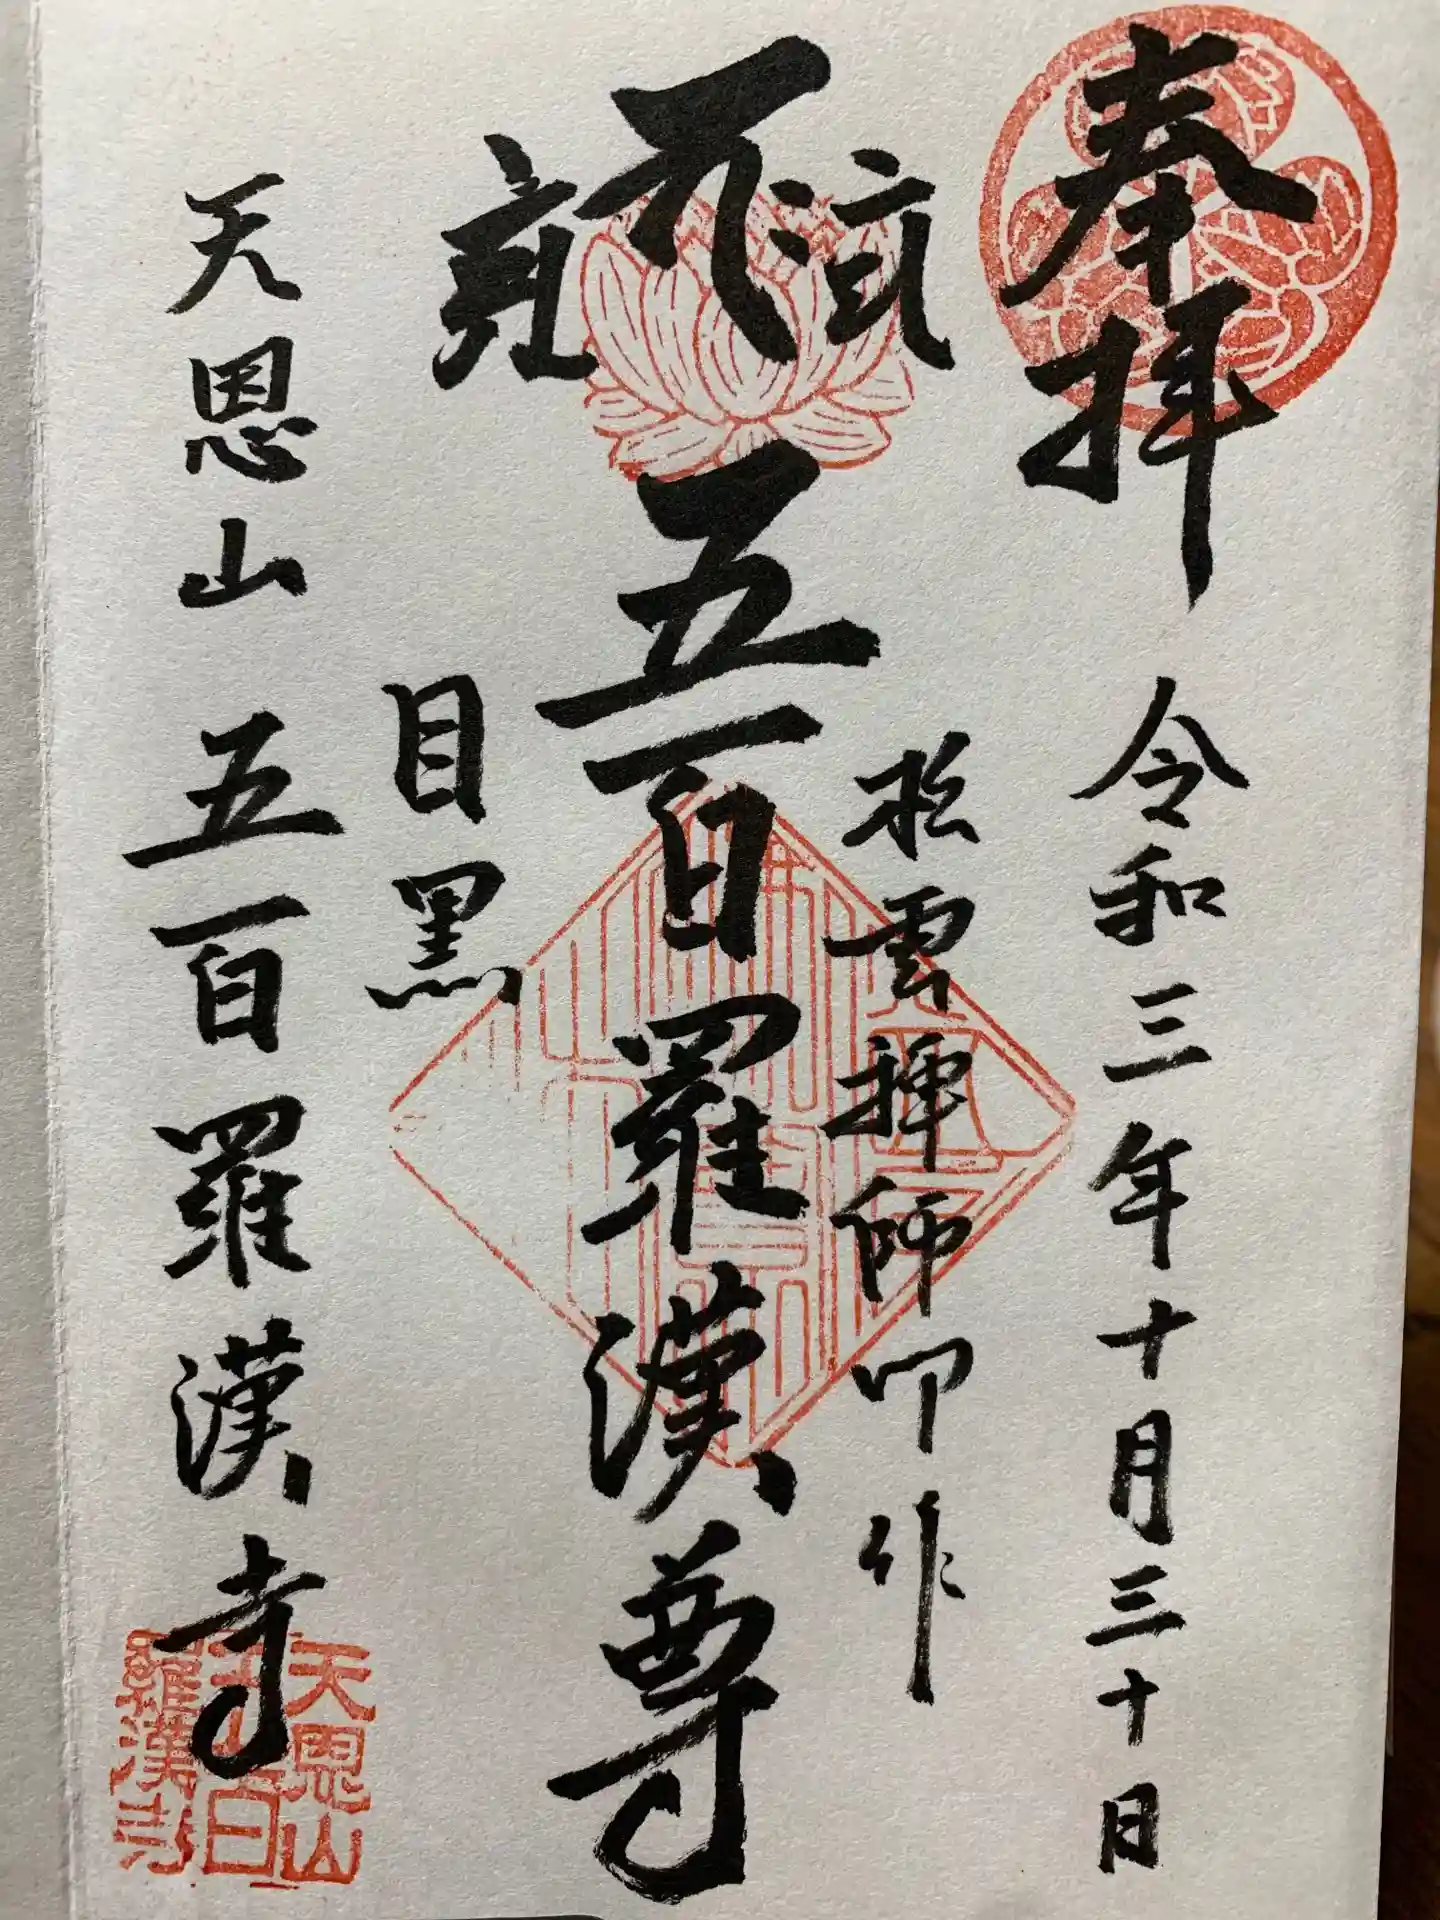 奉拝
令和三年十月三十日
松雲禅師叩作
五百羅漢尊
目黒
天恩山五百羅漢寺
天恩山
五百
羅漢寺